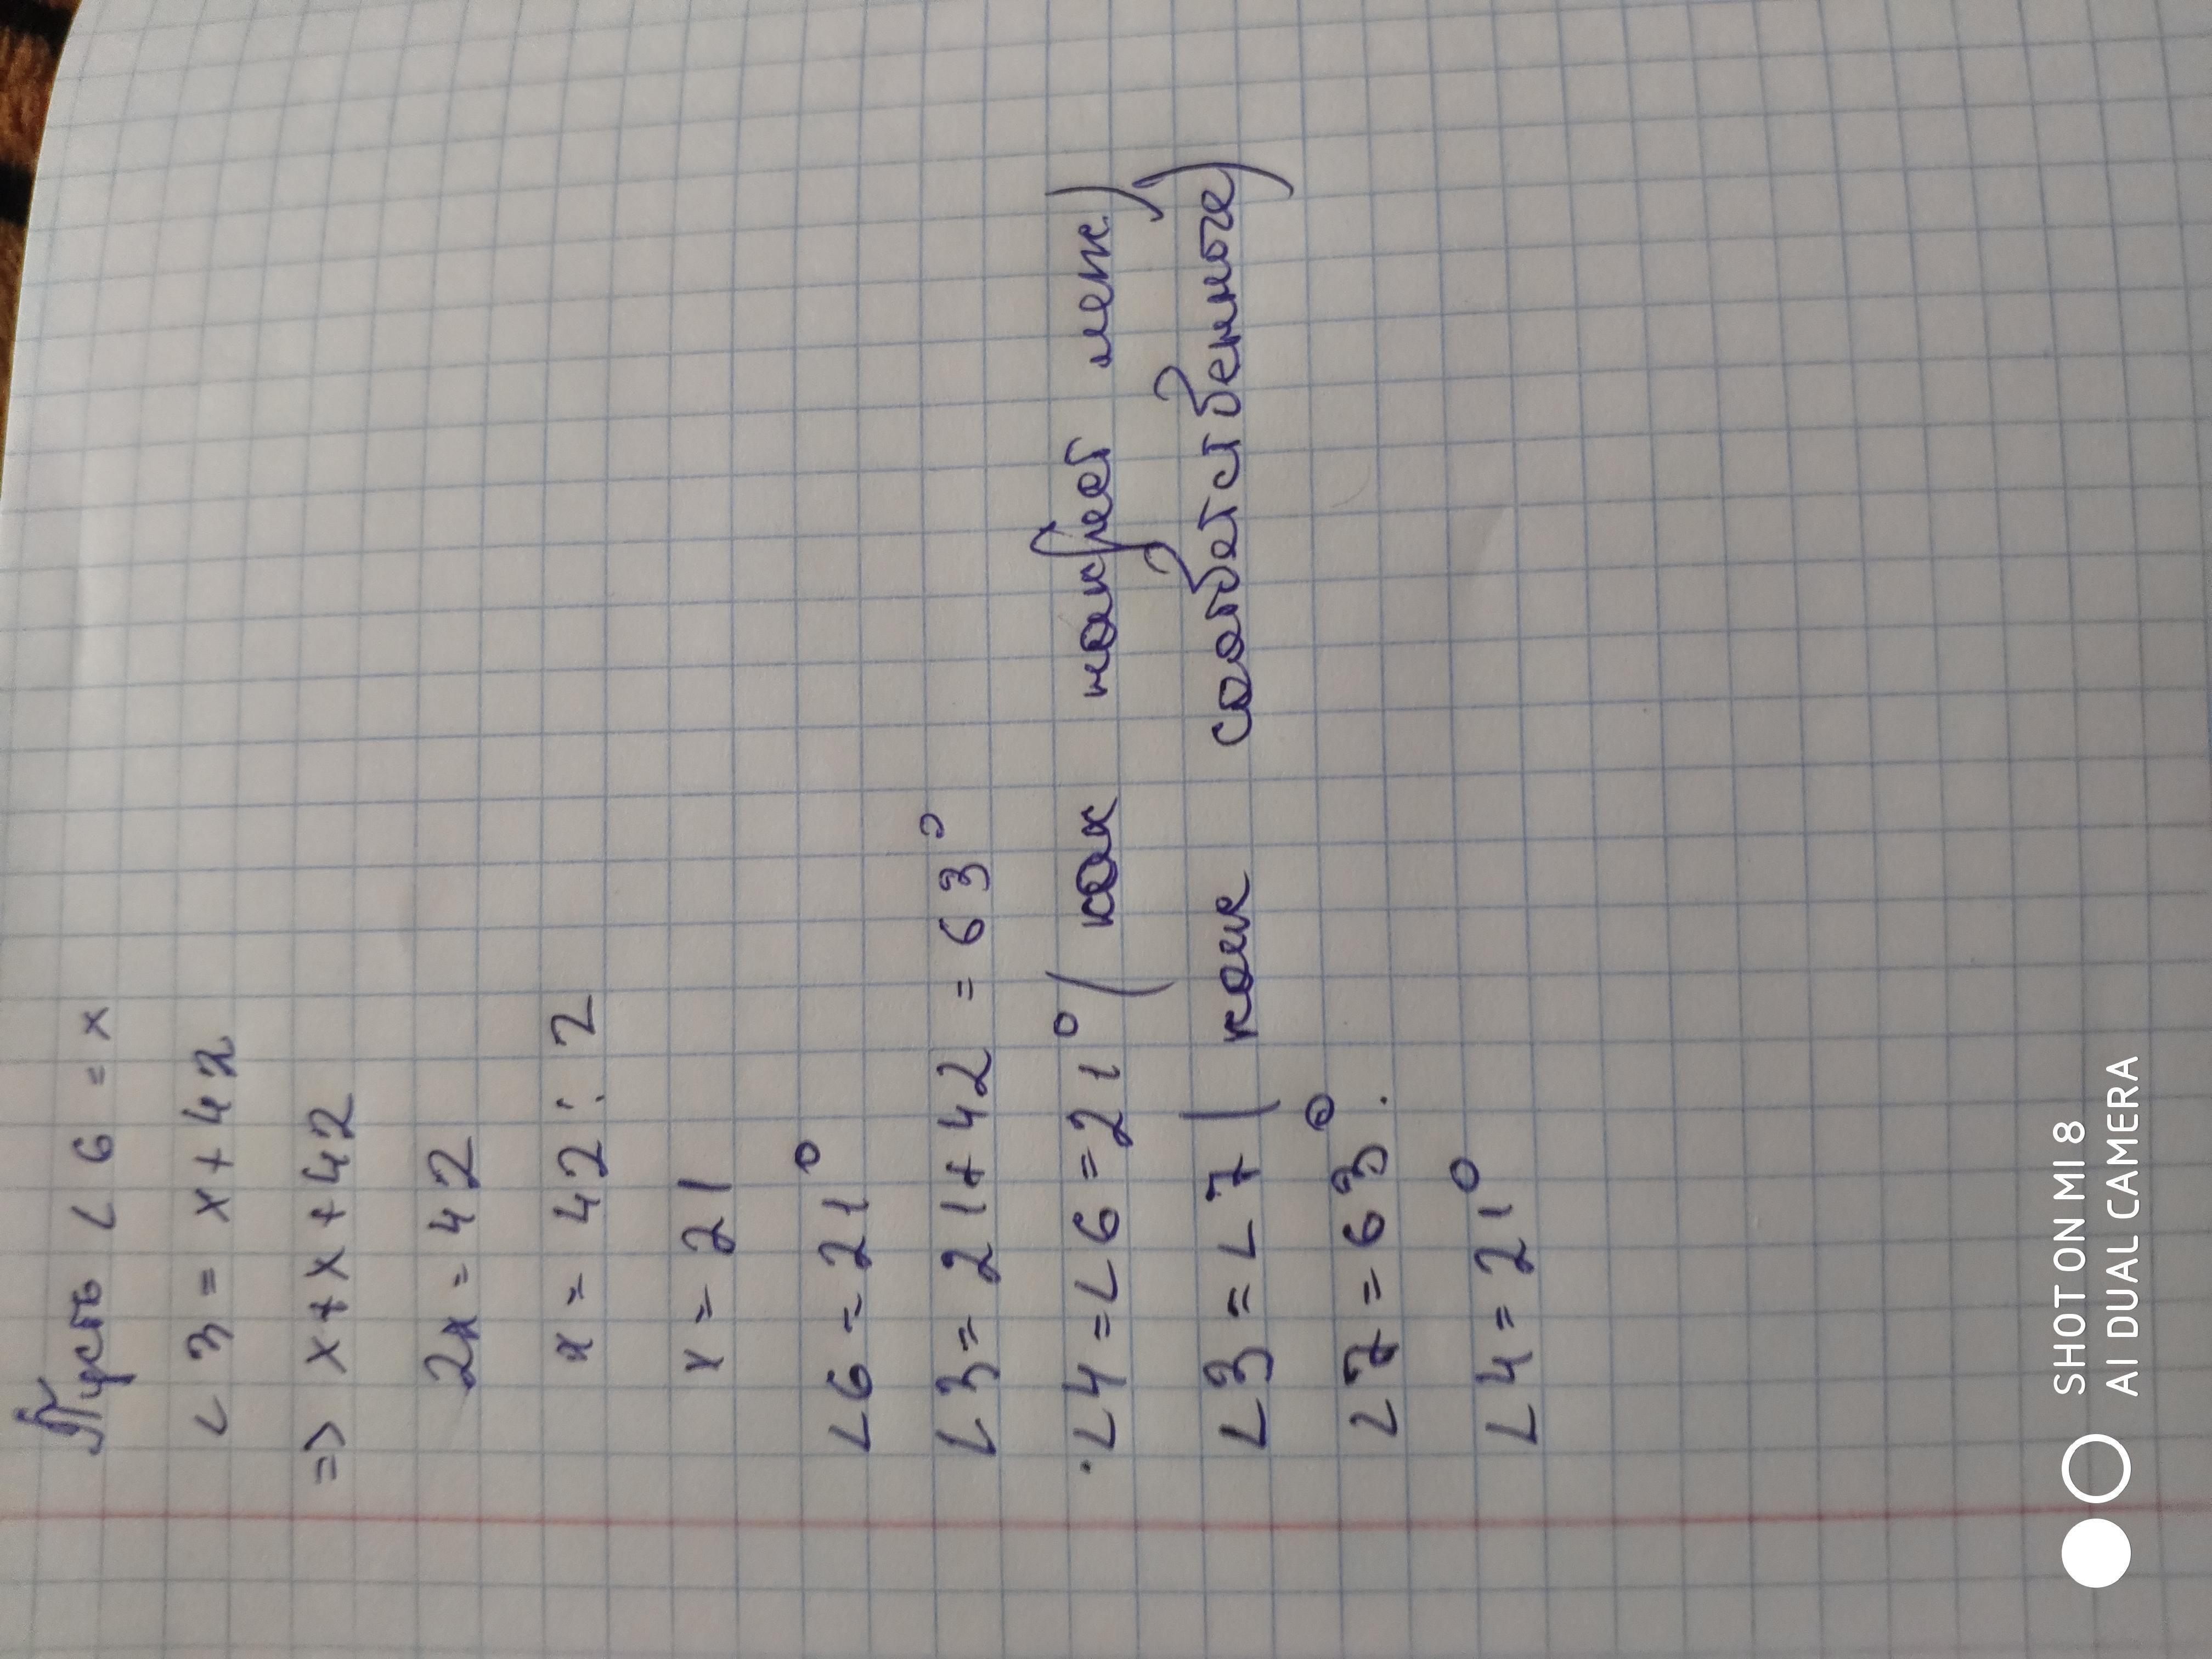 Пусть ∠6 = x
∠3 = x + 42
=> x + x + 42
2x = 42
x = 42 : 2
x = 21
∠6 = 21°
∠3 = 21 + 42 = 63°
∠4 = ∠6 = 21° ( как накрест леж.)
∠3 = ∠7 ( как соответственные)
∠7 = 63°.
∠4 = 21°
SHOT ON MI 8
AI DUAL CAMERA